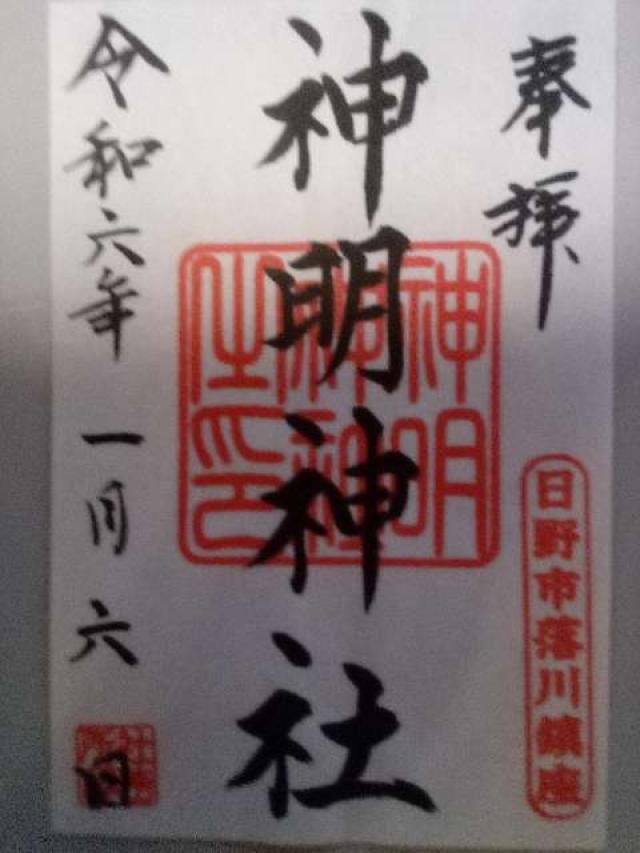 奉拝
日野市落川鎮座
神明神社
神明神社之印
令和六年一月六日